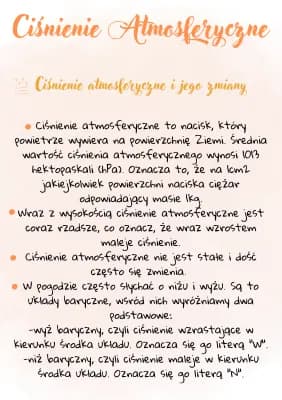 Ciśnienie Atmosferyczne
Ciśnienie atmosferyczne i jego zmiany
• Ciśnienie atmosferyczne to nacisk, który
powietrze wywiera na powierzchnię Ziemi. Średnia
wartość ciśnienia atmosferycznego wynosi 1013
hektopaskali (hPa). Oznacza to, że na 1cm2
jakiejkolwiek powierzchni naciska ciężar
odpowiadający masie 1kg.
• Wraz z wysokością ciśnienie atmosferyczne jest
coraz rzadsze, co oznacz, że wraz wzrostem
maleje ciśnienie.
• Ciśnienie atmosferyczne nie jest stałe i dość
często się zmienia.
• W pogodzie często słychać o niżu i wyżu. Są to
układy baryczne, wśród nich wyróżniamy dwa
podstawowe:
-wyż baryczny, czyli ciśnienie wzrastające w
kierunku środka układu. Oznacza się go literą "W".
-niż baryczny, czyli ciśnienie maleje w kierunku
środka układu. Oznacza się go literą "N".